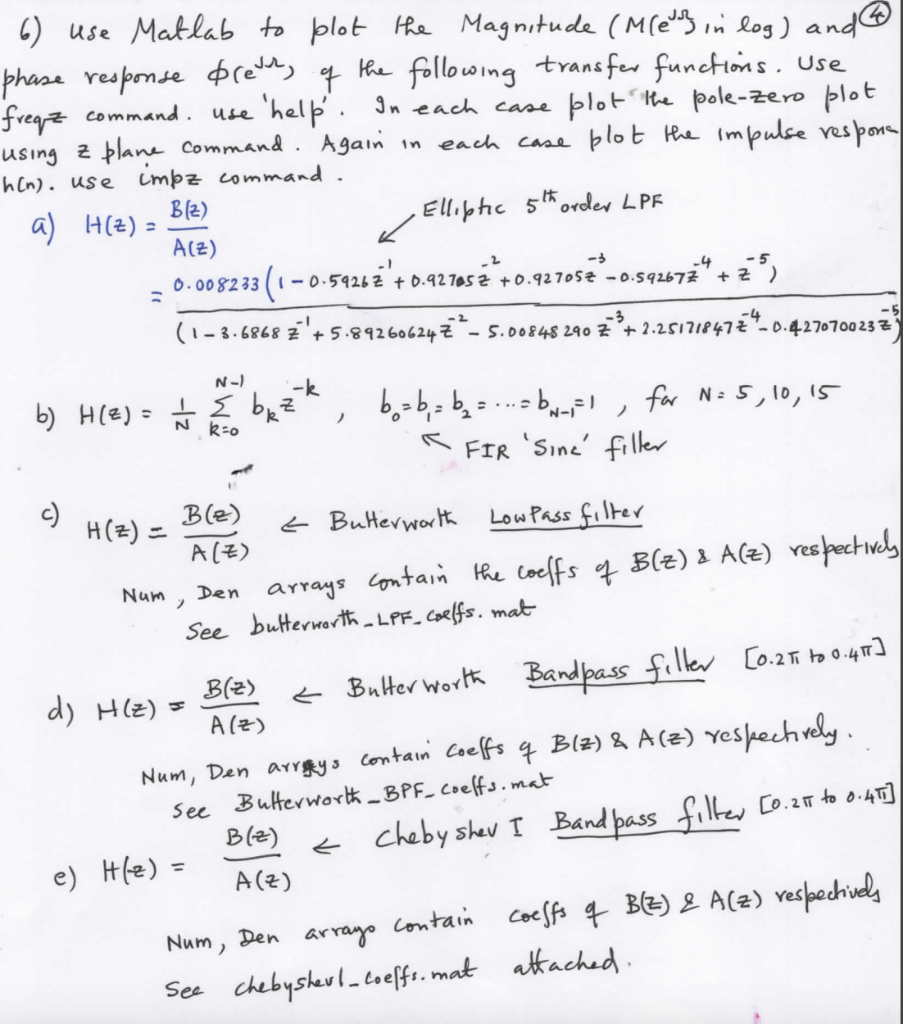 ④
6) use Matlab to plot the Magnitude (M(e^jΩ) in log) and
phase response φ(e^jΩ) of the following transfer functions. Use
freqz command. use 'help'. In each case plot the pole-zero plot
using z plane command. Again in each case plot the impulse respone
h(n). use impz command.
a) H(z) = B(z)/A(z) ← Elliptic 5th order LPF
= 0.008233 (1 - 0.5926z^-1 + 0.92705z^-2 + 0.92705z^-3 - 0.59267z^-4 + z^-5)
(1 - 3.6868 z^-1 + 5.89260624z^-2 - 5.00848290 z^-3 + 2.25171847z^-4 - 0.427070023z^-5)
b) H(z) = 1/N Σ_{k=0}^{N-1} b_k z^-k , b_0=b_1=b_2=...=b_{N-1}=1 , for N=5,10,15
← FIR 'Sinc' filter
c) H(z) = B(z)/A(z) ← Butterworth LowPass filter
Num, Den arrays contain the coeffs of B(z) & A(z) respectively
See butterworth_LPF_coeffs.mat
d) H(z) = B(z)/A(z) ← Butterworth Bandpass filter [0.2π to 0.4π]
Num, Den arrays contain coeffs of B(z) & A(z) respectively.
See Butterworth_BPF_coeffs.mat
e) H(z) = B(z)/A(z) ← Chebyshev I Bandpass filter [0.2π to 0.4π]
Num, Den arrays contain coeffs of B(z) & A(z) respectively
See chebyshev1_coeffs.mat attached.